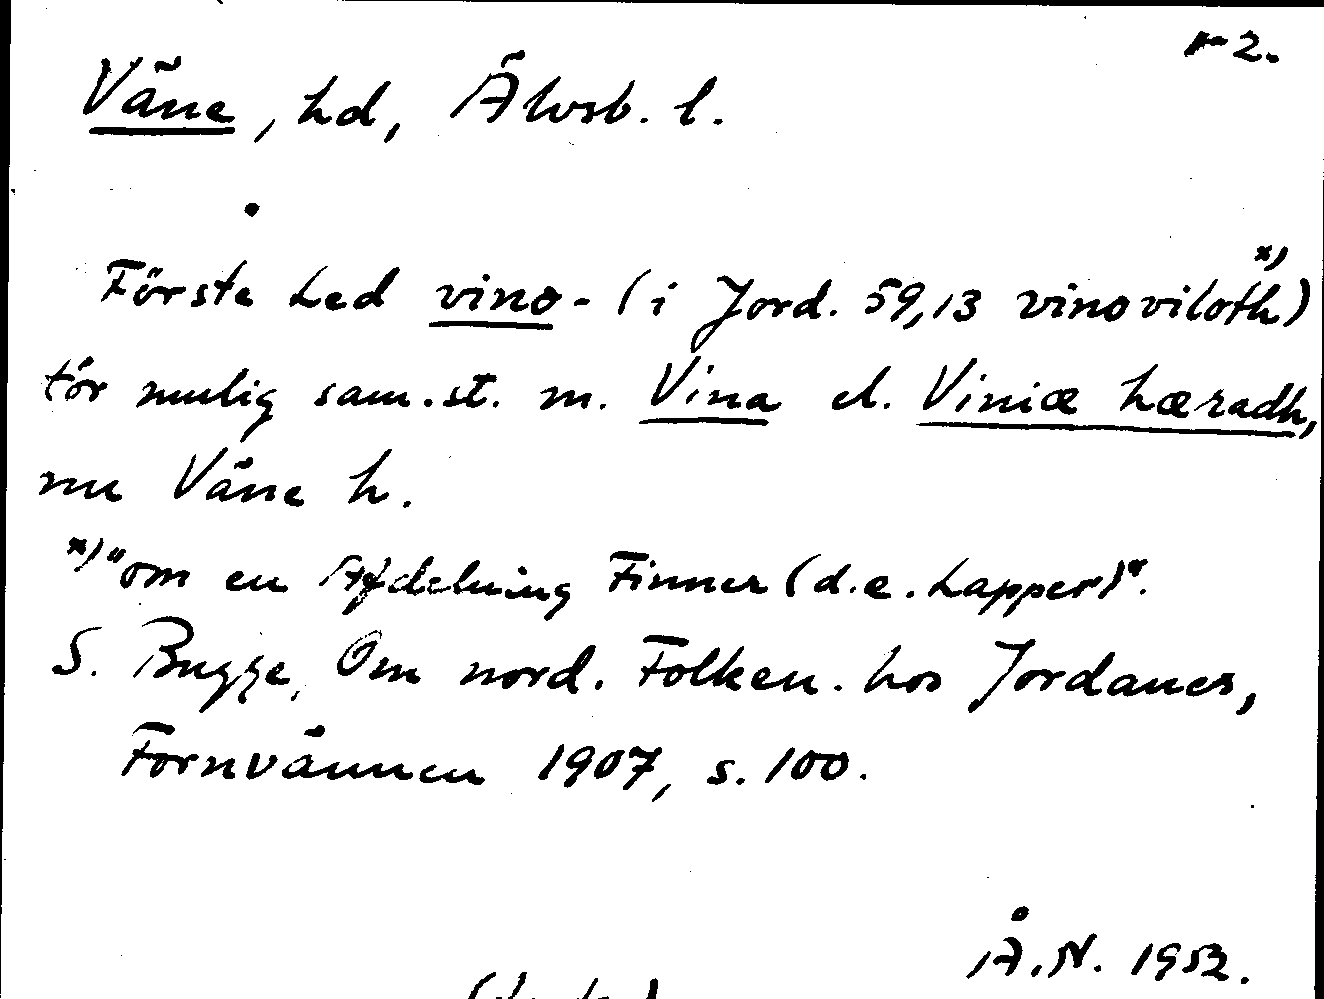 2.
Väne, hd, Älvsb. l.
Förste Led vino- (i Jord. 59,13 vinoviloth) x)
tör mulig sam.st. m. Vina el. Viniæ hæradh,
nu Väne h.
x) "om en Afdelning Finner (d.e. Lapper)".
S. Bugge, Om nord. Folken. hos Jordanes,
Fornvännen 1907, s. 100.
Å.N. 1952.